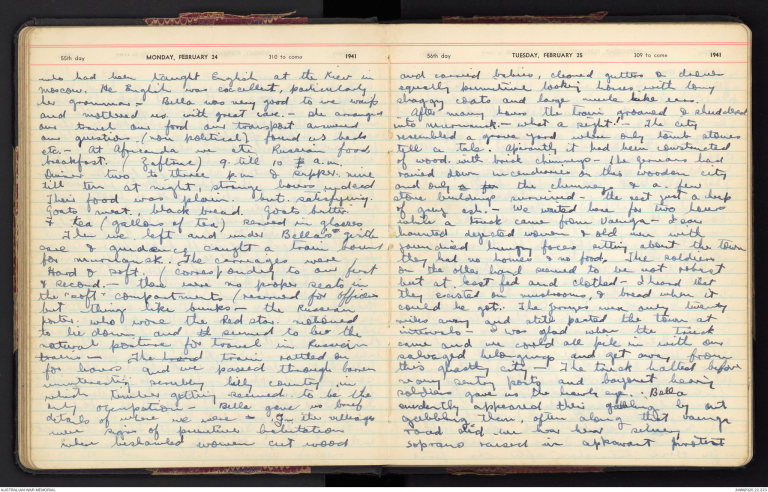 55th day MONDAY, FEBRUARY 24 310 to come 1941
who had been taught English at the Kiev in
Moscow. He English was excellent, particularly
her grammar - Bella was very good to we waifs
and mothered us with great care. - She arranged
our truck our food our transport answered
our questions. (not political) found us beds
etc. - At Africanda we ate Russian food
breakfast. (Zaftone) 9. till 10 a.m.
Dinner two to three p.m & supper. nine
till ten at night, strange hours indeed
Their food was plain. but satisfying.
Goats meat, black bread. Goats butter
& tea (gallons of tea) served in glasses
Then we left and under Bella's
care & guidance caught a train bound
for murmansk. The carriages were
Hard & soft. (corresponding to our first
& second. - there were no proper seats in
the "soft" compartments (reserved for officers
but thing like bunks - the Russian
porter. who wore the Red star. motioned
to lie down and it seemed to be the
natural posture for travel in Russian
trains - The train rattled on
for hours and we passed through barren
uninteresting scrubby hilly country in
which timber getting seemed to be the
only occupation - Bella gave us brief
details of where we were - In the villages
were signs of primitive habitation
where women cut wood
56th day TUESDAY, FEBRUARY 25 309 to come 1941
and carried babies, cleaned gutters or drove
equally primitive looking horses with long
shaggy coats and large mule like ears.
After many hours the train groaned & shuddered
into murmansk - what a sight. - The city
resembled a grave yard where only tomb stones
tell a tale. apparently it had been constructed
of wood. with brick chimneys - The Germans had
rained down incendiaries on this wooden city
and only a few the chimneys & a few
stone buildings survived - the rest just a heap
of grey ash. - We waited here for two hours
while a truck came from Vaenga - I saw
haunted dejected women & old men with
jaundiced hungry faces sitting about the town
they had no homes & no food. The soldiers
on the other hand seemed to be not robust
but at least fed and clothed - I heard that
they existed on mushrooms, & bread when it
could be got. The Germans were only twenty
miles away and still pasted the town at
intervals - I was glad when the truck
came and we could all pile in with our
salvaged belongings and get away from
this ghastly city - The truck halted before
many sentry posts and bayonet bearing
soldiers gave us the hawk eye. - Bella
evidently appeared their by out
them, often along that bumpy
road did we hear her silvery
soprano raised in protest
AUSTRALIAN WAR MEMORIAL